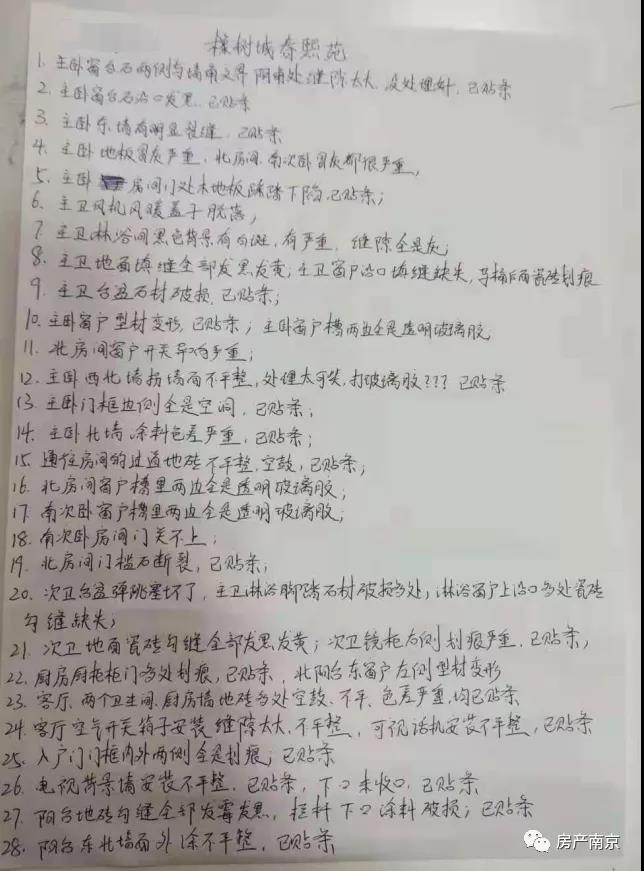 橡树城春熙苑
1. 主卧窗台石两侧与墙角交界阴角处缝隙太大,没处理好,已贴条
2. 主卧窗台石沿口发黑,已贴条
3. 主卧东墙有明显裂缝,已贴条
4. 主卧地板冒灰严重,北房间、南次卧冒灰都很严重,
5. 主卧房间门处木地板踩踏下陷,已贴条;
6. 主卫风机风暖盖子脱落,
7. 主卫淋浴间黑色背景有白斑,有严重,缝隙全是灰;
8. 主卫地面填缝全部发黑发黄;主卫窗户沿口填缝缺失,马桶后面瓷砖划痕
9. 主卫台盆石材破损,已贴条;
10. 主卧窗户型材变形,已贴条;主卧窗户槽两边全是透明玻璃胶,
11. 北房间窗户开关异响严重;
12. 主卧西北墙拐墙面不平整,处理太可笑,打玻璃胶???已贴条
13. 主卧门框边侧全是空洞,已贴条;
14. 主卧北墙涂料色差严重,已贴条;
15. 通往房间的过道地砖不平整,空鼓,已贴条;
16. 北房间窗户槽里两边全是透明玻璃胶;
17. 南次卧窗户槽里两边全是透明玻璃胶;
18. 南次卧房间门关不上;
19. 北房间门槛石断裂,已贴条;
20. 次卫台盆弹跳塞坏了,主卫淋浴脚踏石材破损多处,淋浴窗户上沿口多处瓷砖
勾缝缺失;
21. 次卫地面瓷砖勾缝全部发黑发黄;次卫镜柜右侧划痕严重,已贴条,
22. 厨房厨柜柜门多处划痕,已贴条,北阳台东窗户左侧型材变形
23. 客厅、两个卫生间、厨房墙地砖多处空鼓、不平、色差严重,均已贴条
24. 客厅空气开关箱子安装缝隙太大、不平整,可视话机安装不平整,已贴条
25. 入户门门框内外两侧全是划痕;已贴条
26. 电视背景墙安装不平整,已贴条,下口未收口,已贴条
27. 阳台地砖勾缝全部发霉发黑,栏杆下口涂料破损;已贴条
28. 阳台东北墙面外涂不平整,已贴条
房产南京